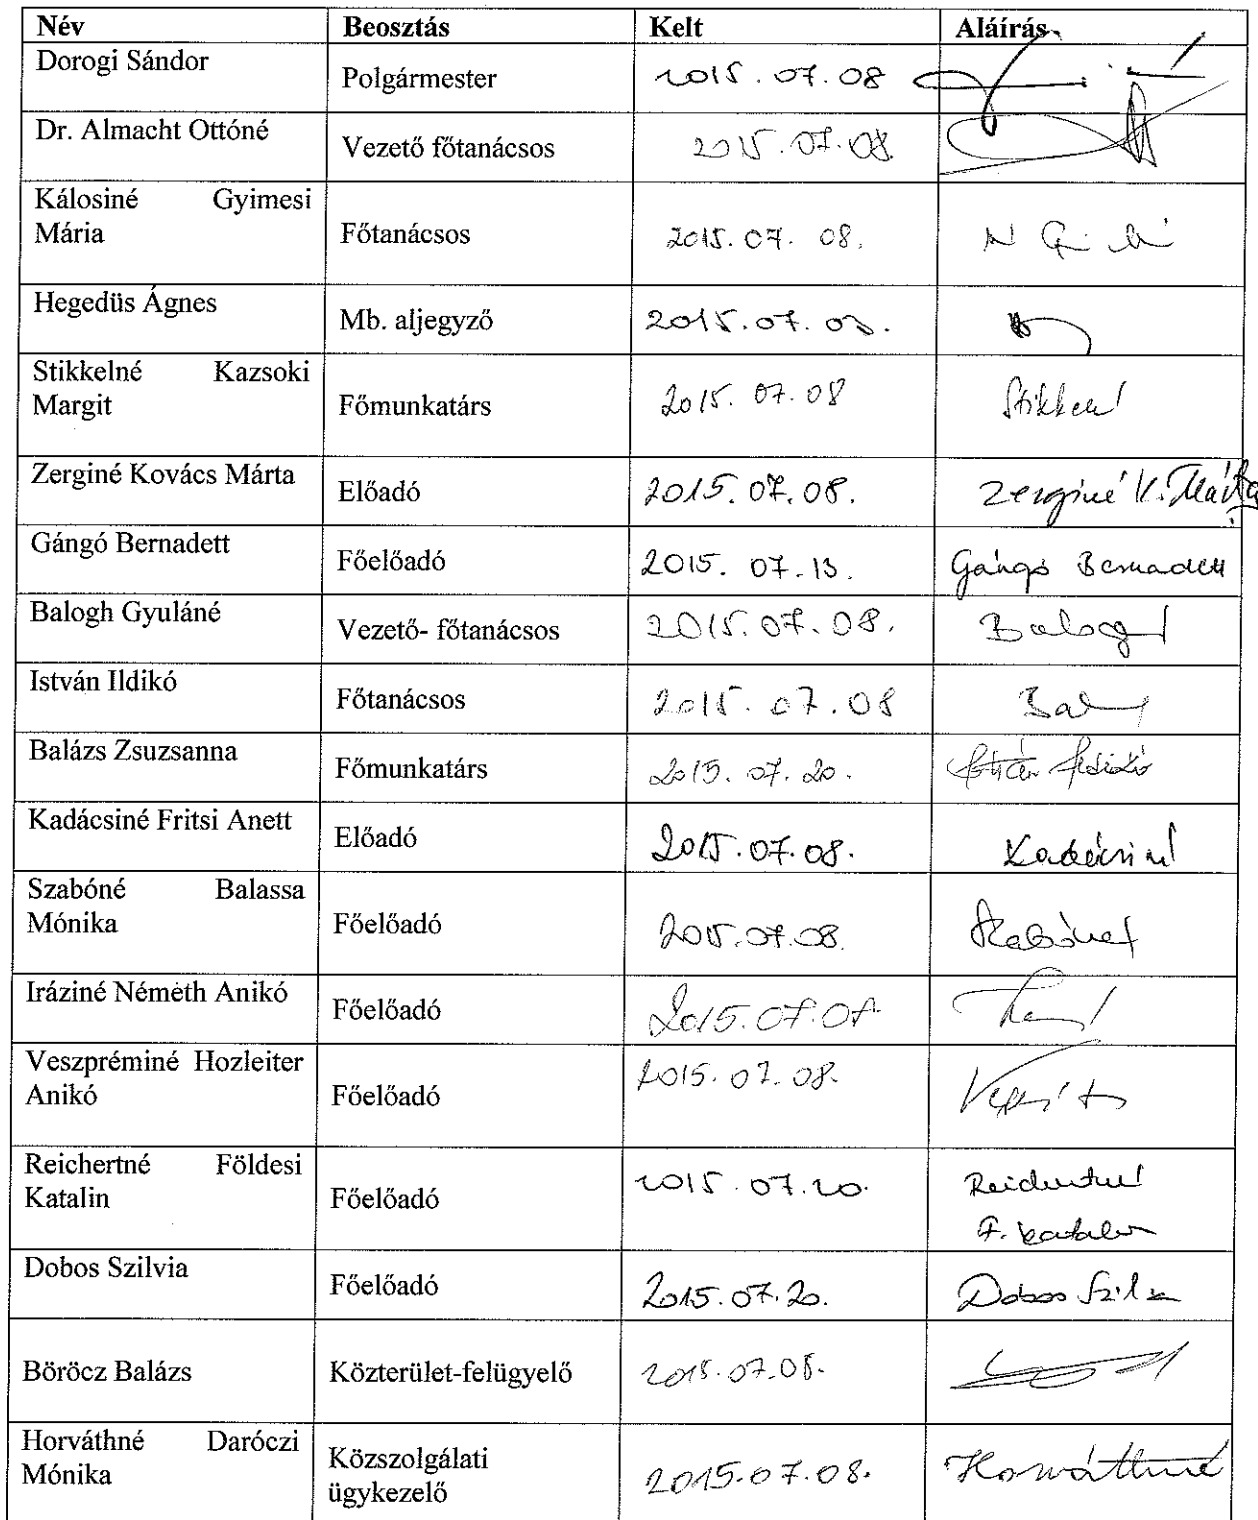 Név Beosztás Kelt Aláírás
Dorogi Sándor Polgármester 2015.07.08
Dr. Almacht Ottóné Vezető főtanácsos 2015.07.08.
Kálosiné Gyimesi
Mária Főtanácsos 2015.07.08.
Hegedüs Ágnes Mb. aljegyző 2015.07.
Stikkelné Kazsoki
Margit Főmunkatárs 2015.07.08
Zerginé Kovács Márta Előadó 2015.07.08. Zerginé K. Márta
Gángó Bernadett Főelőadó 2015.07.13. Gángó Bernadett
Balogh Gyuláné Vezető- főtanácsos 2015.07.08. Balogh
István Ildikó Főtanácsos 2015.07.08
Balázs Zsuzsanna Főmunkatárs 2015.07.20. István Ildikó
Kadácsiné Fritsi Anett Előadó 2015.07.08. Kadácsiné
Szabóné Balassa
Mónika Főelőadó 2015.07.08. Szabóné
Iráziné Németh Anikó Főelőadó 2015.07.07.
Veszpréminé Hozleiter
Anikó Főelőadó 2015.07.08.
Reichertné Földesi
Katalin Főelőadó 2015.07.20. Reichertné
F. Katalin
Dobos Szilvia Főelőadó 2015.07.20. Dobos Szilvia
Böröcz Balázs Közterület-felügyelő 2015.07.08.
Horváthné Daróczi
Mónika Közszolgálati
ügykezelő 2015.07.08. Horváthné